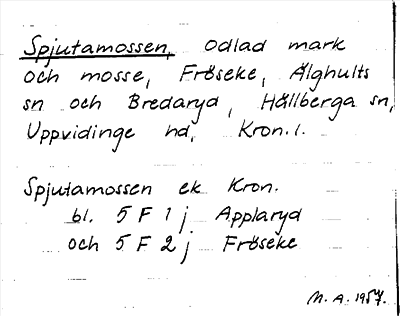 Spjutamossen, odlad mark
och mosse, Fröseke, Älghults
sn och Bredaryd, Hällberga sn,
Uppvidinge hd, Kron.l.
Spjutamossen ek Kron.
bl. 5 F 1 j Applaryd
och 5 F 2 j Fröseke
M. A. 1957.